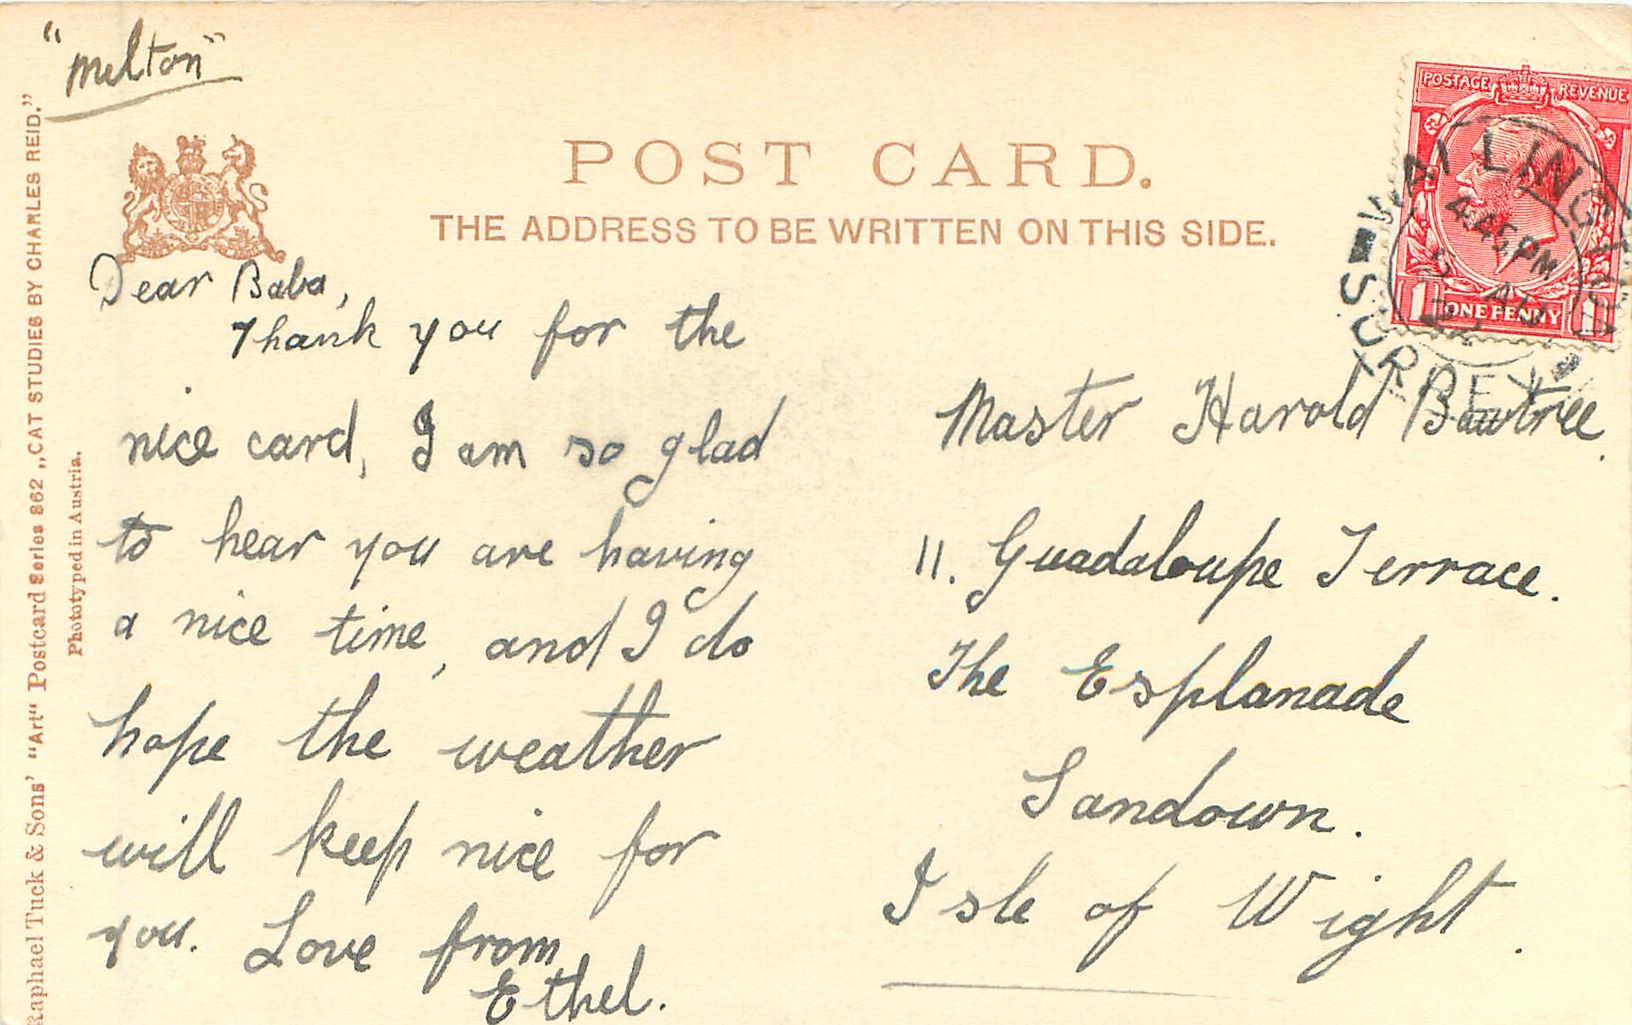 "Melton"
POST CARD.
THE ADDRESS TO BE WRITTEN ON THIS SIDE.
Dear Baba,
Thank you for the
nice card, I am so glad
to hear you are having
a nice time, and I do
hope the weather
will keep nice for
you. Love from
Ethel.
Master Harold Bawtree.
11. Guadaloupe Terrace.
The Esplanade
Sandown.
Isle of Wight.
POSTAGE REVENUE
ONE PENNY
WALLINGTON
4.45 PM
AU
SURREY
Raphael Tuck & Sons' "Art" Postcard Series 862 „CAT STUDIES BY CHARLES REID."
Phototyped in Austria.